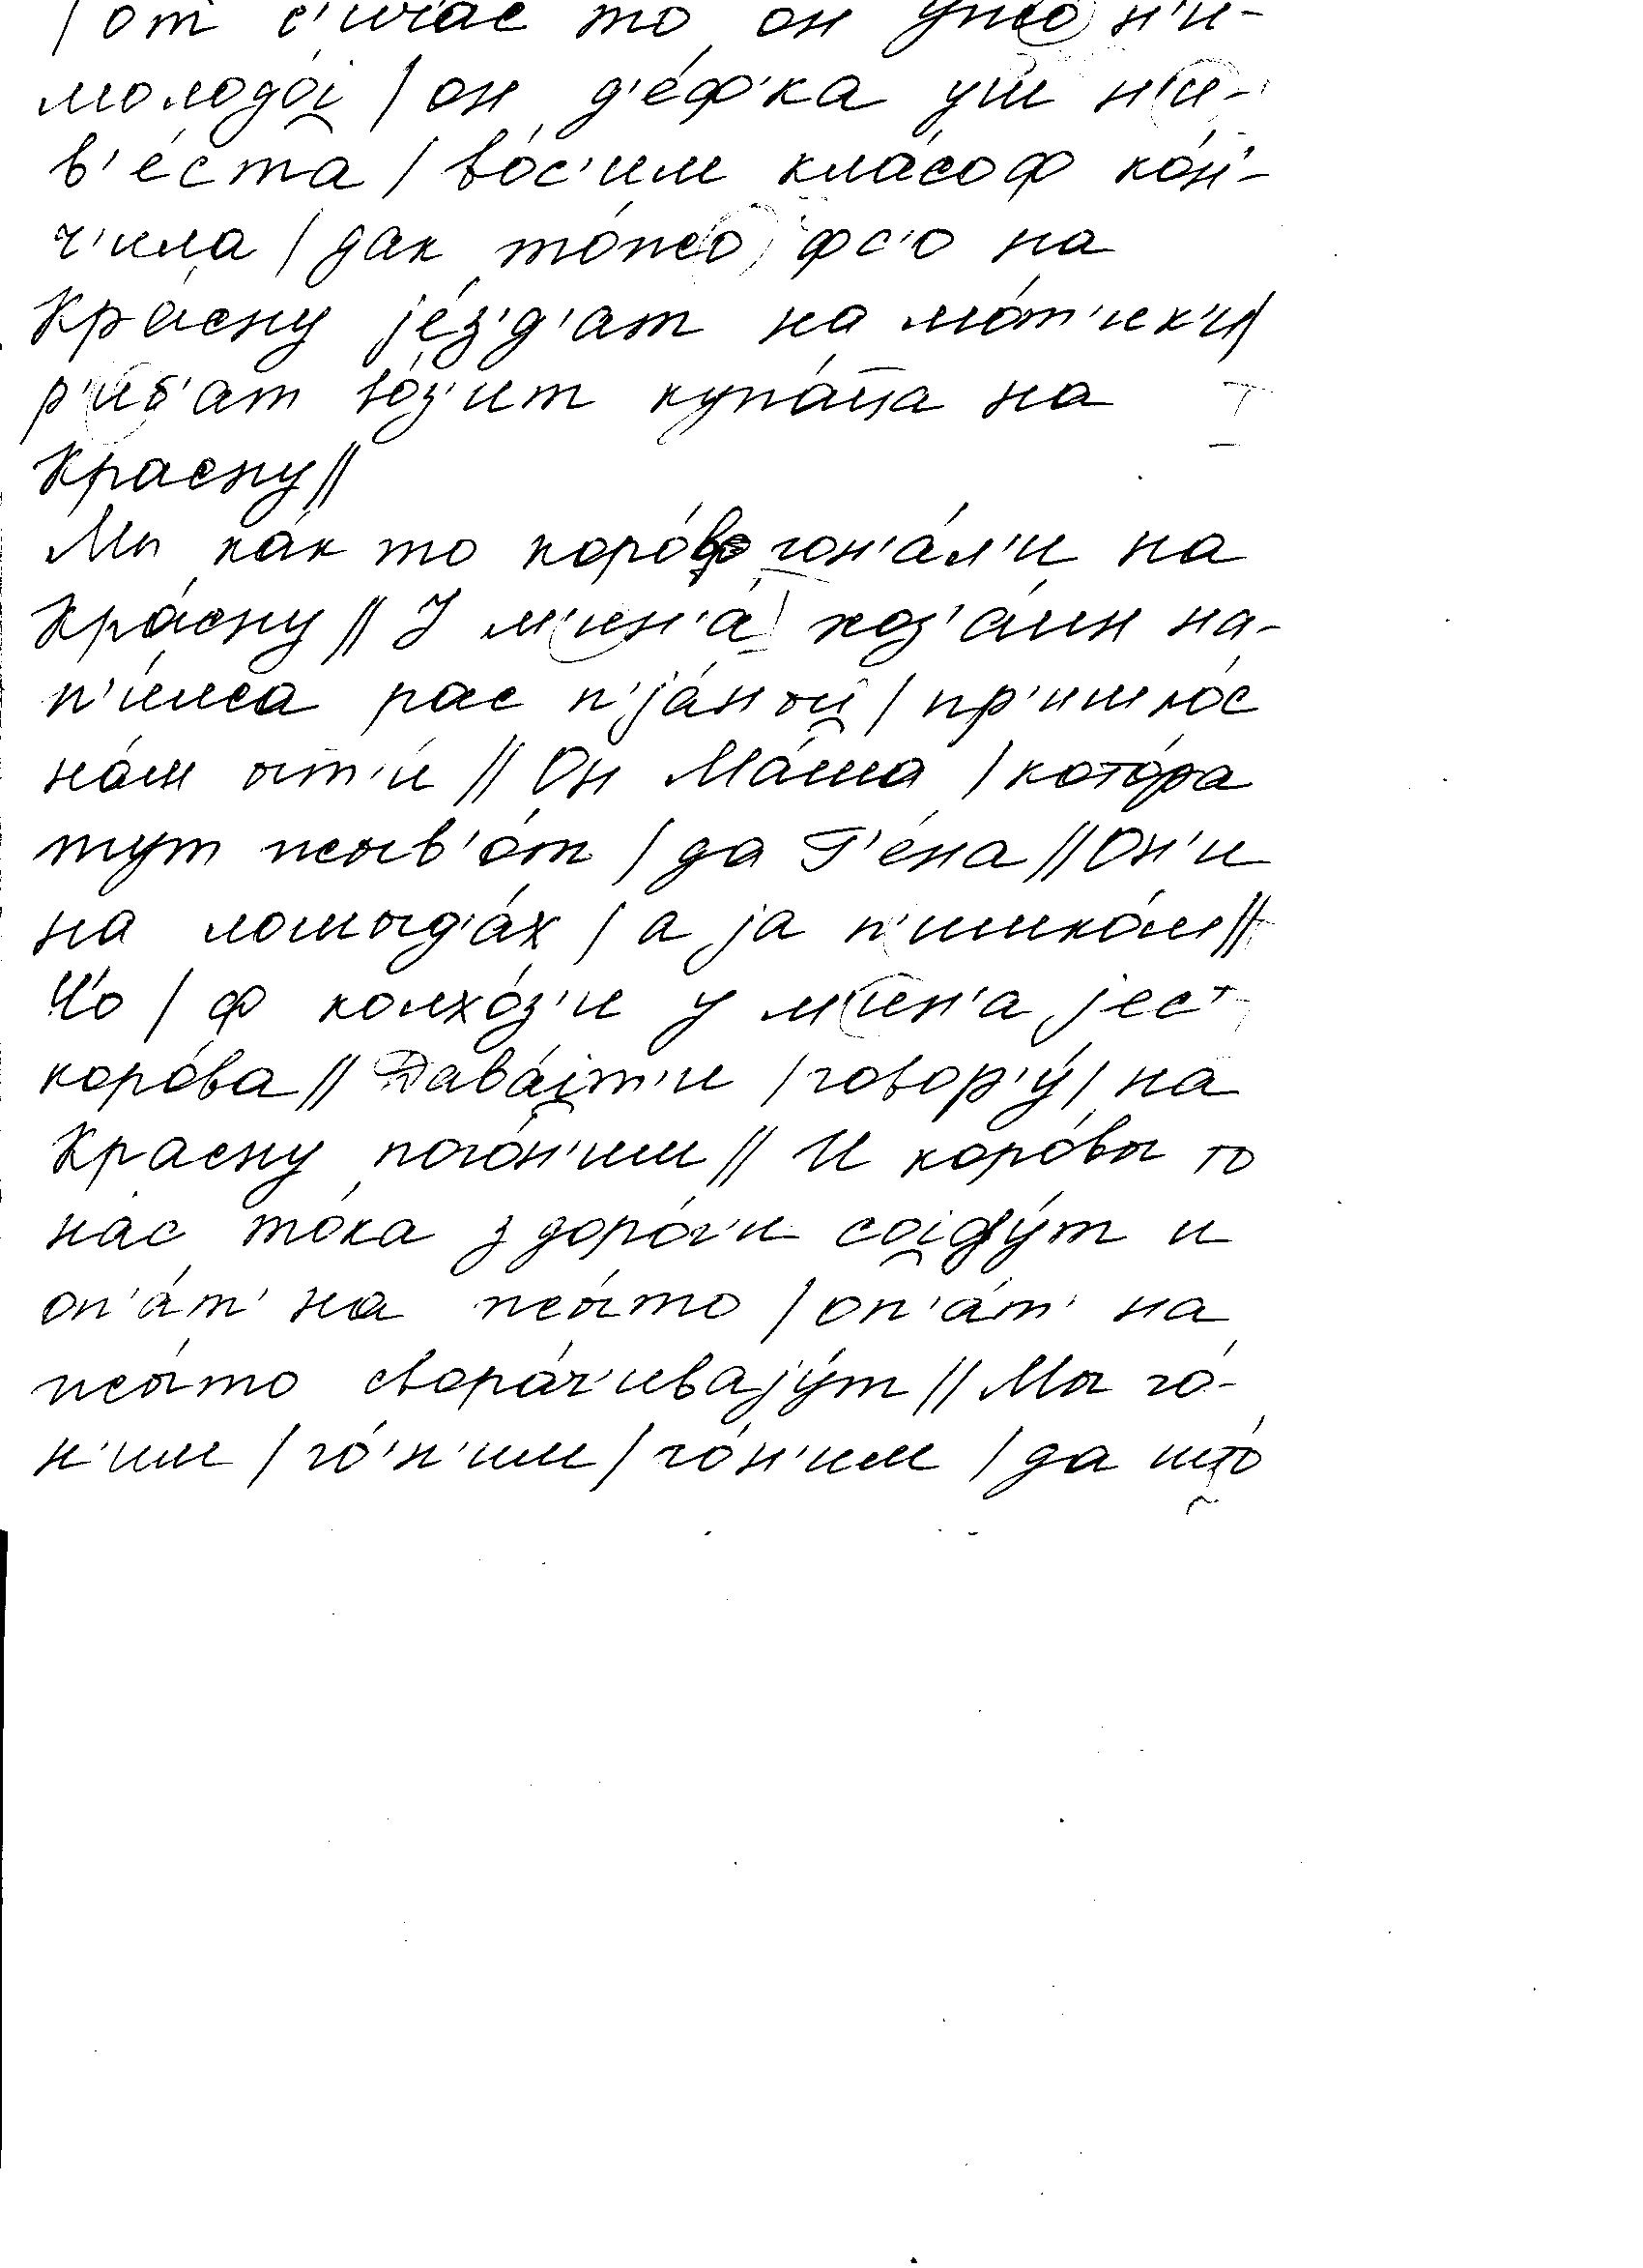 / от с'ичас то он ужо н'и-
молодо́i̯ / он д'е́ф'ка уш н'и-
в'е́ста / во́с'им кла́соф ко́н'-
ч'ила / дак то́жо фс'о на
Кра́сну jе́з'д'ат на мо́т'ик'и/
р'иб'ат во́з'ит купа́ца на
Красну //
Мы ка́к то коро́в гон'а́л'и на
Кра́сну // У м'ин'а́ хоз'а́ин на-
п'и́лса рас п'jа́ной / пр'ишло́с
на́м ыт'и́ // Он Ма́ша / кото́ра
тут жыв'о́т / да Г'е́на // Он'и
на лошыд'а́х / а jа п'ишко́м //
Чо / ф колхо́з'и у м'ин'а jест
коро́ва // Дава́i̯т'и / говор'у́ / на
Красну пого́н'им // И коро́вы то
на́с то́ка з доро́г'и соi̯ду́т и
оп'а́т' на жы́то / оп'а́т' на
жы́то свора́ч'иваjу́т // Мы го́-
н'им / го́'н'им / го́н'им / да што́